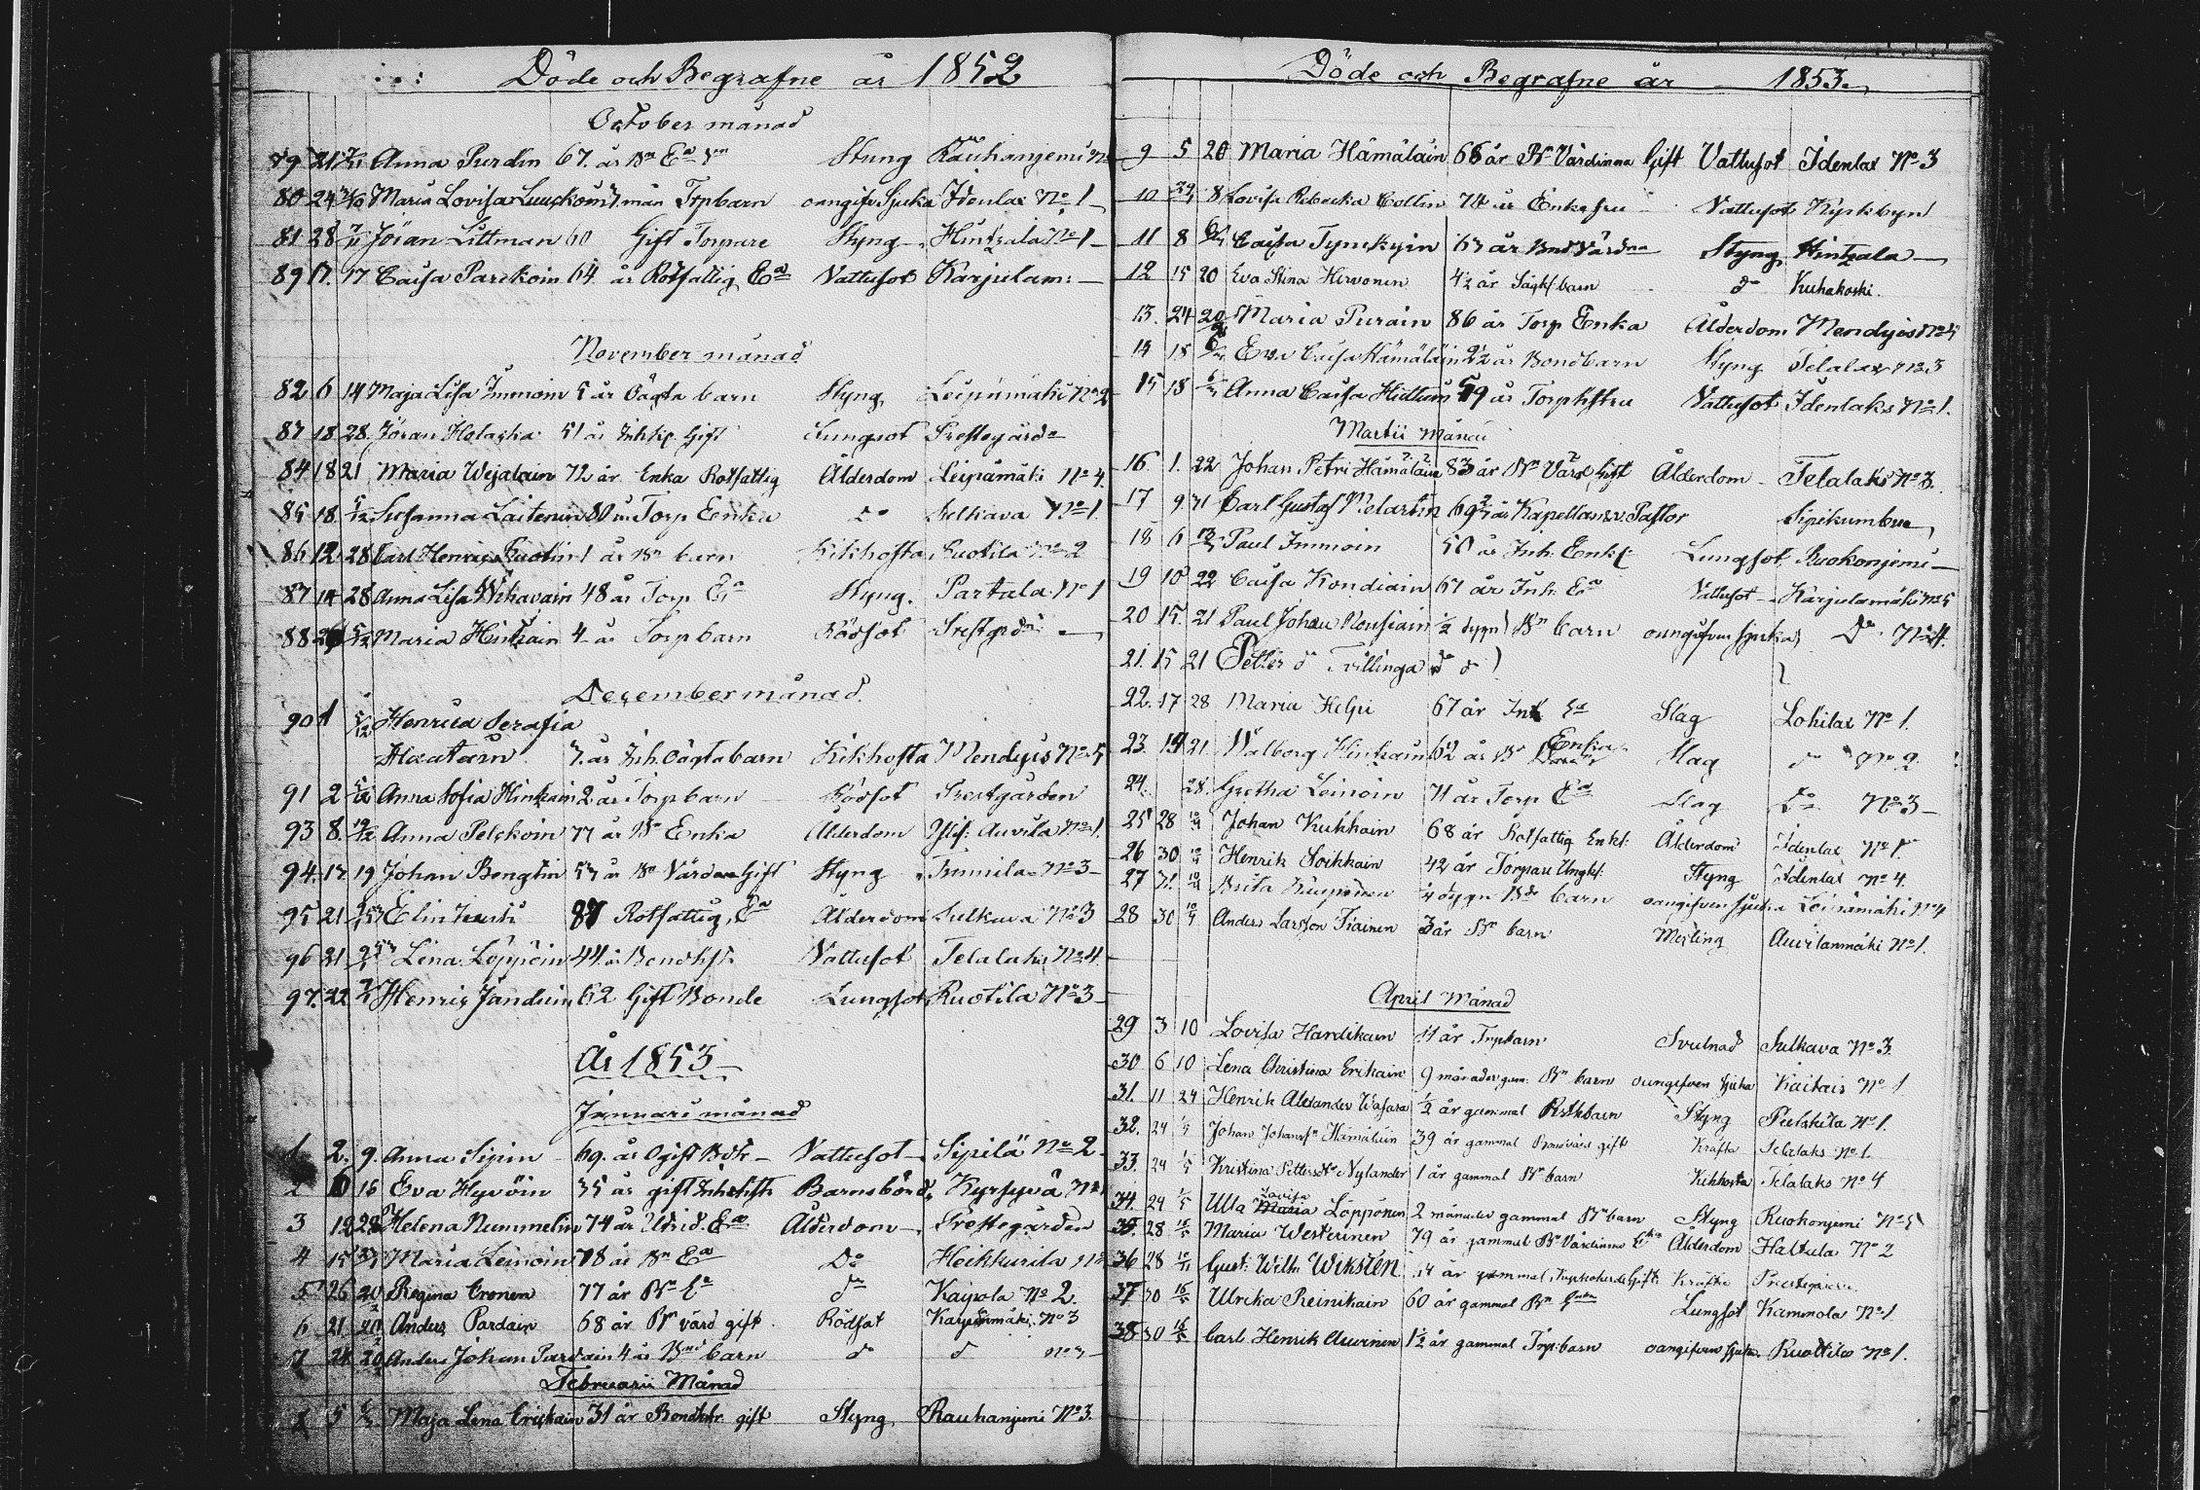 Döde och Begrafne år 1852
October månad
79 21 7/11 Anna Purdin 67. år Bn Ea Styng Rauhanjemi
80 24 Maria Lovisa 7. mån Trpbarn oangifv Sjuka Idenlax No 1
81 28 7/11 Jöran Littman 60 Gift Torpare Styng Hintzala No 1
89 17. 17 Caisa Parckoin 64 år Rotfattig Ea Vattusot Karjulam:
November månad
82 6 14 Maja Lisa Immoin 5 år Oägta barn Styng Leipämäki No 2
83 18 28. Jöran 51 år Inhp. Gift Lungsot Prestegårdn
84 18 21 Maria Wejalain 72 år Enka Rotfattig Ålderdom Leipämäki No 4.
85 18. 5/12 Susanna Laitenin 80 år Torp Enka Do Sulkava No 1.
86 12 28 Carl Henric Ruotin 1 år Bn barn Kikhosta Ruotila No 2
87 14 28 Anna Lisa Wihavain 48 år Torp Ea Styng. Partala No 1
88 5/12 Maria Hintzain 4 år Torp barn Rödsot
December månad
90 1 5/12 Henrica Serafia
Haatain 7. år Inh. Oägta barn Kikhosta Mendyis No 5
91 2 5/12 Anna Sofia Hinkain 2 år Torp barn Rödsot Prestgården
93 8. 12/12 Anna Pelckoin 77 år Bn Enka Ålderdom Auvila No 1.
94. 17. 19 Johan Bengtin 53 år Bn Värd Gift Styng Tunnila No 3
95 21 Elin 87 Rotfattig Ea Ålderdom Sulkava No 3
96 21 Lena Löppöin 44. år Bondhst. Vattusot Telalaks No 4.
97. 22 Henric Janduin 62 Gift Bonde Lungsot Ruotila No 3
År 1853
Januari månad
1 2. 9. Anna Sipin 69. år Ogift Vattusot Sipilä No 2
2 10 16 Eva Hyvöin 35 år gift Inhehstr Barnsbörd, Kyrsyvä No 1
3 12 28 Helena Nummelin 74 år Ea Ålderdom Prestegården
4 15 Maria Leinoin 78 år Bn Ea Do Heikkurila
5 26 20/2 Regina Cronen 77 år Bn Ea do Kaipola No 2
6 21 20/2 Anders Pardain 68 år Bn värd gift Rödsot No 3
7 24 20/2 Anders Johan Pardain 4 år Bnd barn do do No 3
Februarii Månad
8 5 Maja Lena Erickain 31 år Bondhstr gift Styng Rauhanjemi No 3.
Döde och Begrafne år 1853
9 5 20 Maria Hämäläin 66 år Bn Värdinna Gift Vattusot Idenlax No 3
10 8 Lovisa Rebecka Collin 74 år Enkefru Vattusot Kyrkbyn
11 8 Caisa Tynckyin 63 år Bnd Värdna Styng Hintzala
12 15 20 Eva Stina Hirvonen 4½ år barn do Kuhakoski.
13. 24 Maria Purain 86 år Torp Enka Ålderdom Mendyis No 5
14 18 Eva Caisa Hämäläin 2½ år Bondbarn Styng Telalax No 3
15 18 Anna Caisa 59 år Torphstru Vattusot Idenlaks No 1.
Martii Månad
16. 1. 22 Johan Petri Hämäläin 83 år Bn Värd Gift Ålderdom Telalaks No 3.
17 9. 31 Carl Gustaf Melartin 69 år Kapellan & v. Pastor Sipikumbu
18 6 Paul Immoin 50 år Inh. Enkl: Lungsot Ruokonjemi
19 10 22 Caisa Kondiain 67 år Inh. Ea Vattusot Karjulamäki No 5
20 15. 21 Paul Johan Nousiain ½ dygn Bn barn oangifven sjuka Do No 4.
21. 15 21 Petter d Tvillinga do do
22. 17 28 Maria Helpi 67 år Inh Ea Slag Lohilax No 1.
23. 19 21 Walborg Hinkain 62 år Bn Enka Slag do No 2.
24. 28. Gretha Leinoin 71 år Torp Ea Slag Do No 3
25 28 10/4 Johan Kukkain 68 år Rotfattig Enkl: Ålderdom Idenlax No 1.
26 30 10/4 Henrik Soikkain 42 år Torpare Ungkl. Styng Idenlax No 4.
27 31 10/4 Brita ¼ dygn Bn barn oangifven sjuka Leinämäki No 4
28 30 10/4 Anders Larsson Tiainen 3 år Bn barn Messling Auvilanmäki No 1.
April Månad
29 3 10 Lovisa Hardikain 11 år Trpbarn Svulnad Sulkava No 3.
30 6 10 Lena Christina Erikain 9 månader gam. Bn barn oangifven Sjuka Kaitais No 1
31. 11 24 Henrik Alexander Wasara ½ år gammal Styng Pulskila No 1.
32. 24 1/5 Johan Johansn Hämäläin 39 år gammal Bondvärd gift Kräfta Telalaks No 1
33. 24 1/5 Kristina Pettersdtr Nylander 1 år gammal Bn barn Kikhosta Telalaks No 4
34. 24 1/5 Ulla Lovisa Löppönen 2 månader gammal Bn barn Styng Ruokonjemi No 5
35. 28 16/5 Maria Westerinen 79 år gammal Bn Värdinna Eka Ålderdom Haltula No 2
36 28 Gust: Wilh: Wiksten år gammal Gift Kräfta
37 30 16/5 Ulrika Reinikain 60 år gammal Bn Lungsot Kammola No 1
38. 30 16/5 Carl Henrik Auvinen 1½ år gammal Trp. barn oangifven sjuka Ruottila No 1.